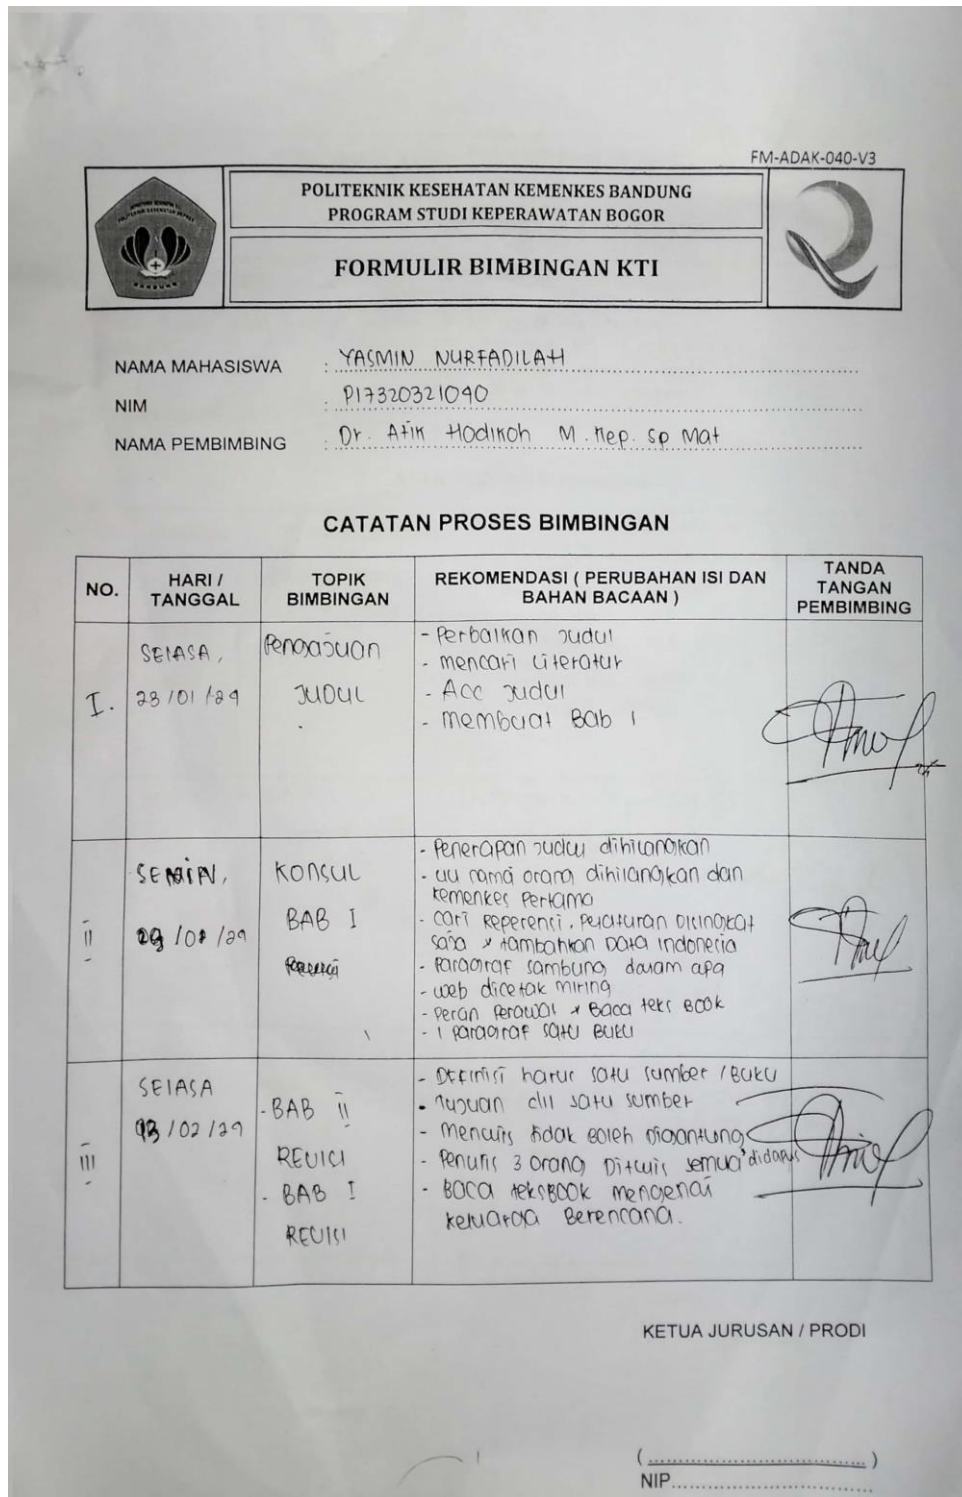 FM-ADAK-040-V3
POLITEKNIK KESEHATAN KEMENKES BANDUNG
PROGRAM STUDI KEPERAWATAN BOGOR
FORMULIR BIMBINGAN KTI
BANDUNG
NAMA MAHASISWA : YASMIN NURFADILAH
NIM : P17320321040
NAMA PEMBIMBING : Dr. Atik Hodikoh M. Kep. Sp Mat
CATATAN PROSES BIMBINGAN
NO.
HARI /
TANGGAL
TOPIK
BIMBINGAN
REKOMENDASI ( PERUBAHAN ISI DAN
BAHAN BACAAN )
TANDA
TANGAN
PEMBIMBING
I.
SELASA,
23/01/24
Pengajuan
JUDUL
- Perbaikan Judul
- mencari Literatur
- Acc Judul
- membuat Bab 1
II
SENIN,
KONSUL
BAB I
- Penerapan Judul dihilangkan
- uu nama orang dihilangkan dan
kemenkes Pertama
- cari Reperensi. Peraturan disingkat
saja & tambahkan Data Indonesia
- Paragraf sambung dalam apa
- web dicetak miring
- Peran Perawat & Baca teks Book
- 1 Paragraf satu Buku
III
SELASA
/02/24
- BAB II
REVISI
- BAB I
REVISI
- Definisi harus satu sumber / Buku
- Tujuan dll satu sumber
- Menulis tidak boleh digantung
- Penulis 3 orang Ditulis semua didapus
- Baca teksBook mengenai
keluarga Berencana.
KETUA JURUSAN / PRODI
(........................................)
NIP........................................